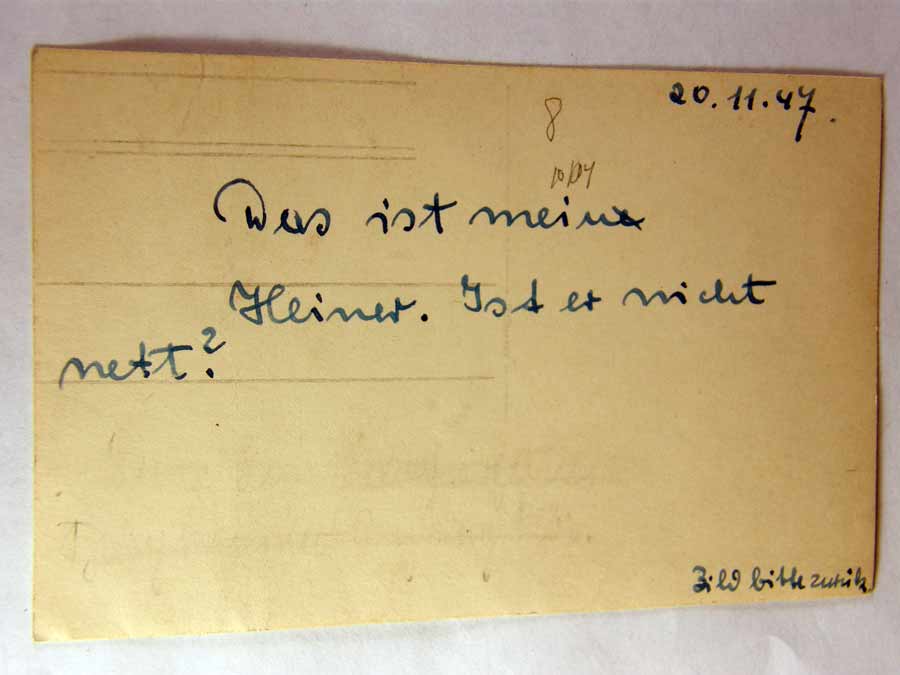 20.11.47.
8
Das ist mein
Heiner. Ist er nicht
nett?
Bild bitte zurück